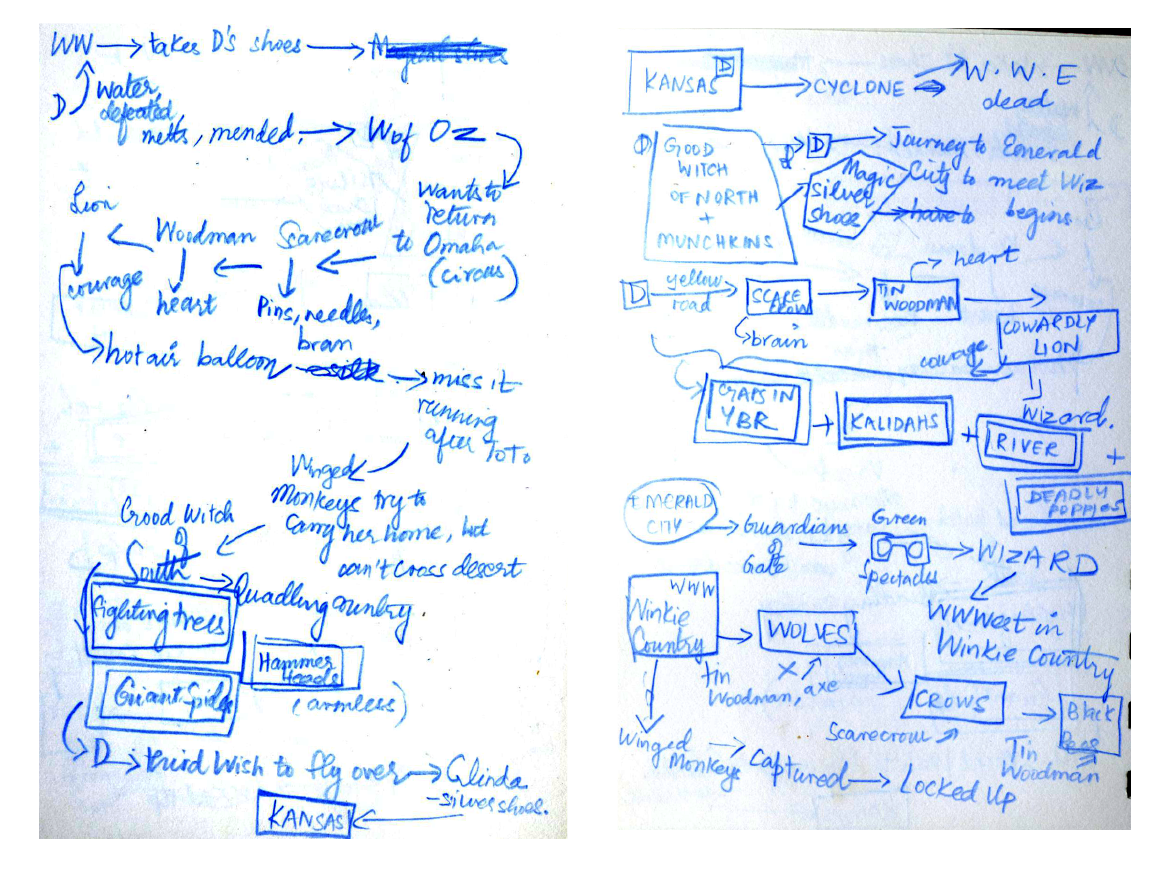 WW → takes D's shoes →
D
Water,
defeated
melts, mended, → W of Oz
Wants to
return
to Omaha
(circus)
Lion
Woodman
Scarecrow
courage
heart
Pins, needles,
bran
→ hot air balloon → miss it
running
after ToTo
Winged
Monkeys try to
carry her home, but
can't cross desert
Good Witch
of
South → Quadling Country.
fighting trees
Hammer
Heads
(armless)
Giant Spider
D → third Wish to fly over → Glinda
- silver shoes.
KANSAS
KANSAS D → CYCLONE → W.W.E
dead
D
GOOD
WITCH
OF NORTH
+
MUNCHKINS
D → Journey to Emerald
City to meet Wiz
begins
Magic
silver
shoes
D yellow
road
SCARE
CROW
brain
TIN
WOODMAN
→ heart
COWARDLY
LION
courage
Wizard.
GAPS IN
YBR
+ KALIDAHS + RIVER +
DEADLY
POPPIES
EMERALD
CITY
→ Guardians
of
Gate
→ Green
Spectacles
→ WIZARD
WWWest in
Winkie Country
WWW
Winkie
Country
→ WOLVES
X
tin
Woodman, axe
CROWS
Scarecrow
→ Black
Bees
Tin
Woodman
Winged
Monkeys
→ Captured → Locked Up